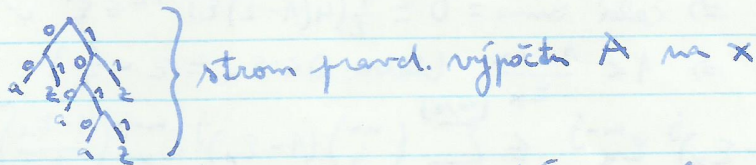 0 1
0 1 0 1
a z 0 1 z
a 0 1
a z
strom pravd. výpočtu A na x